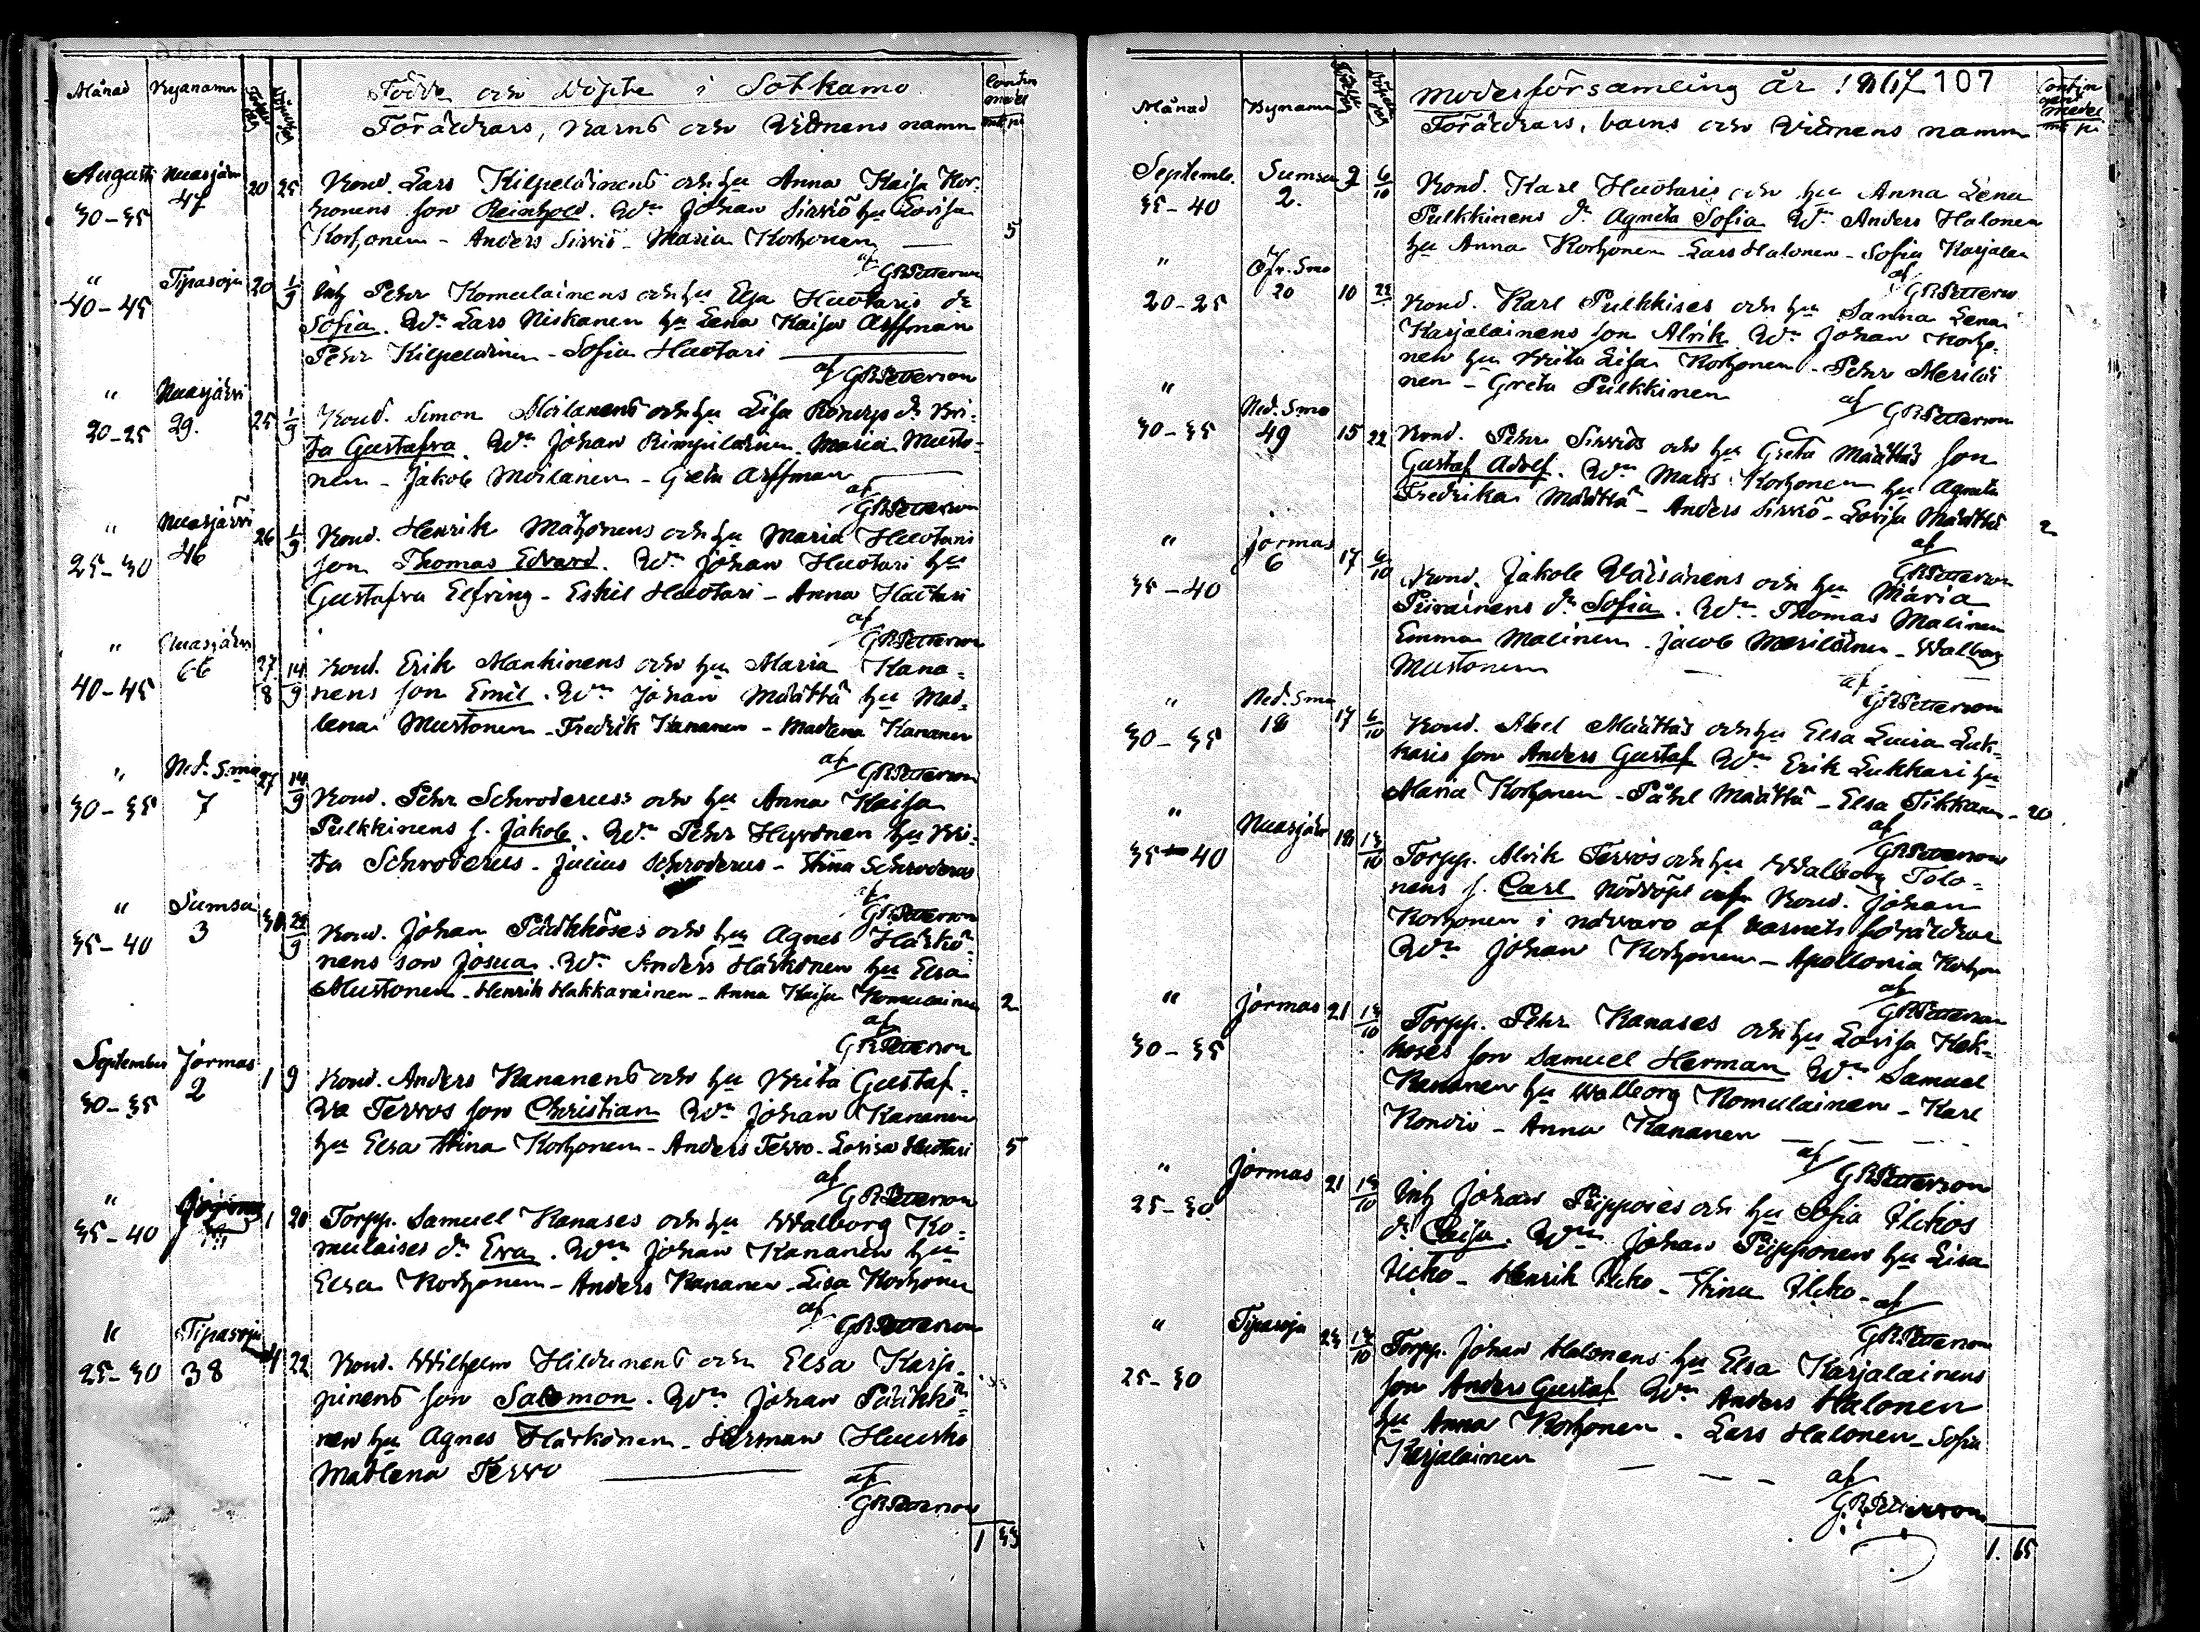 Månad Bynamn Födde och döpte i Sotkamo
Föräldrars, barns och Vittnens namn
Augusti Nuasjärvi 20 25 Bond. Lars Kilpeläinens och hu Anna Kaisa Kor-
30-35 47 honens son Reinhold. Wn Johan Sirviö hu Lovisa
Korhonen - Anders Sirviö - Maria Korhonen 5
af GRPetterson
" Tipasoja 20 1/9 Inh Pehr Komulainens och hu Elsa Huotaris dr
40-45 Sofia. Wn Lars Niskanen hu Lena Kaisa Arffman
Pehr Kilpeläinen - Sofia Huotari
af GRPetterson
" Nuasjärvi 25 1/9 Bond. Simon Moilanens och hu Lisa dr Bri-
20-25 29. ta Gustafva. Wn Johan Rimpiläinen Maria Musto-
nen - Jakob Moilanen - Greta Arffman
af GRPetterson
" Nuasjärvi 26 1/9 Bond. Henrik Mahonens och hu Maria Huotaris
25-30 46 son Thomas Edvard. Wn Johan Huotari hu
Gustafva Elfving - Eskil Huotari - Anna Huotari
af GRPetterson
" Nuasjärvi 27 14 Bond. Erik Mankinens och hu Maria Kana-
40-45 66 8 9 nens son Emil. Wn Johan Määttä hu Mad-
lena Mustonen - Fredrik Kananen - Madlena Kananen
af GRPetterson
" Ned. Smo 27 14/9 Bond. Pehr Schroderus's och hu Anna Kaisa
30-35 7 Pulkkinens s. Jakob. Wn Pehr Hyvönen hu Bri-
ta Schroderus - Julius Schroderus - Stina Schroderus
af GRPetterson
" Sumsa 30 22/9 Bond. Johan Pääkköses och hu Agnes Härkö-
35-40 3 nens son Josua. Wn Anders Härkönen hu Elsa
Mustonen - Henrik Hakkarainen - Anna Kaisa Komulainen 2
af GRPetterson
September Jormas 1 9 Bond. Anders Kananens och hu Brita Gustaf-
30-35 2 va Tervos son Christian Wn Johan Kananen
hu Elsa Stina Korhonen - Anders Tervo - Lovisa Huotari 5
af GRPetterson
" 1 20 Torpp. Samuel Kanases och hu Walborg Ko-
35-40 mulaises dr Eva. Wn Johan Kananen hu
Elsa Korhonen - Anders Kananen - Lisa Korhonen
af GRPetterson
" Tipasoja 4 22 Bond. Wilhelm Hildunens och Elsa Karp-
25-30 38 pinens son Salomon. Wn Johan Pääkkö-
nen hu Agnes Härkönen - Herman Huusko
Madlena Tervo
af GRPetterson
1 33
Månad Bynamn Moderförsamling År 1867 107
Föräldrars, barns och Vittnens namn
Septemb. Sumsa 2 6/10 Bond. Karl Huotaris och hu Anna Lena
35-40 2. Pulkkinens dr Agneta Sofia Wn Anders Halonen
hu Anna Korhonen - Lars Halonen - Sofia Karjalai
af GRPetterson
" Öfr. Smo 10 22 Bond. Karl Pulkkises och hu Sanna Lena
20-25 20 Karjalainens son Alrik Wn Johan Korho-
nen hu Brita Lisa Korhonen - Pehr Meriläi
nen - Greta Pulkkinen
af GRPetterson
" Ned. Smo 15 22 Bond. Pehr Sirviös och hu Greta Määttäs son
30-35 49 Gustaf Adolf. Wn Matts Korhonen hu Agneta
Fredrika Määttä - Anders Sirviö - Lovisa Määttä 2
af GRPetterson
" Jormas 17 6/10 Bond. Jakob Väisänens och hu Maria
35-40 6 Piirainens dr Sofia. Wn Thomas Malinen
Emma Malinen - Jacob Meriläinen - Walborg
Mustonen
af GRPetterson
" Ned. Smo 17 6/10 Bond. Abel Määttäs och hu Elsa Luisa Luk-
30-35 18 karis son Anders Gustaf Wn Erik Lukkari hu
Maria Korhonen - Påhl Määttä - Elsa Tikkanen - 20
af GRPetterson
" Nuasjärv 18 13/10 Torpp. Alrik Tervos och hu Walborg Tolo-
35-40 nens s. Carl Nöddöpt af Bond. Johan
Korhonen i närvaro af barnets föräldrar
Wn Johan Korhonen - Apollonia Korhon
af GRPetterson
" Jormas 21 13/10 Torpp. Pehr Kanases och hu Lovisa Kek-
30-35 koses son Samuel Herman Wn Samuel
Kananen hu Walborg Komulainen - Karl
Kondio - Anna Kananen
af GRPetterson
" Jormas 21 13/10 Inh Johan Piipposes och hu Sofia Ulkos
25-30 dr Caisa. Wn Johan Piipponen hu Lisa
Ulko - Henrik Ulko - Stina Ulko - af
GRPetterson
" Tipasoja 23 13/10 Torpp. Johan Halonens hu Elsa Karjalainens
25-30 son Anders Gustaf Wn Anders Halonen
hu Anna Korhonen - Lars Halonen - Sofia
Karjalainen
af
GRPetterson
1. 65